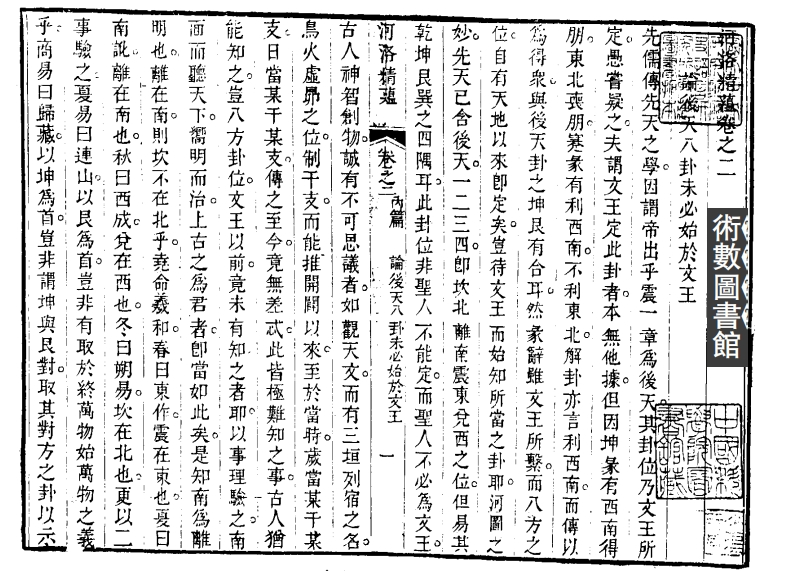 河洛精蘊卷之二
論後天八卦未必始於文王
先儒傳先天之學因謂帝出乎震一章為後天其卦位乃文王所
定愚嘗疑之夫謂文王定此卦者本無他據但因坤彖有西南得
朋東北喪朋蹇彖有利西南不利東北解卦亦言利西南而傳以
為得衆與後天卦之坤艮有合耳然彖辭雖文王所繫而八方之
位自有天地以來卽定矣豈待文王而始知所當之卦耶河圖之
妙先天已含後天一二三四卽坎北離南震東兌西之位但易其
乾坤艮巽之四隅耳此卦位非聖人不能定而聖人不必為文王
河洛精蘊 卷之二 內篇 論後天八卦未必始於文王 一
古人神智創物誠有不可思議者如觀天文而有三垣列宿之名
鳥火虛昴之位制干支而能推開闢以來至於當時歲當某干某
支日當某干某支傳之至今竟無差忒此皆極難知之事古人猶
能知之豈八方卦位文王以前竟未有知之者耶以事理驗之南
面而聽天下嚮明而治上古之為君者卽當如此矣是知南為離
明也離在南則坎不在北乎堯命羲和春曰東作震在東也夏曰
南訛離在南也秋曰西成兌在西也冬曰朔易坎在北也更以二
事驗之夏易曰連山以艮為首豈非有取於終萬物始萬物之義
乎商易曰歸藏以坤為首豈非謂坤與艮對取其對方之卦以示
術數圖書館